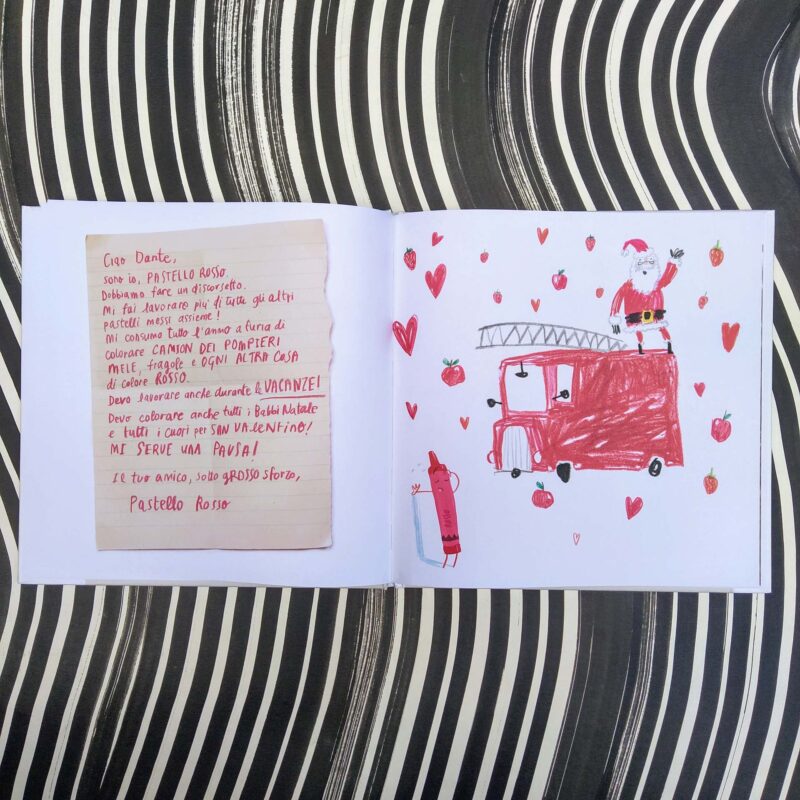 Ciao Dante,
sono io, PASTELLO ROSSO.
Dobbiamo fare un discorsetto.
Mi fai lavorare piu' di tutti gli altri
pastelli messi assieme!
Mi consumo tutto l'anno a furia di
colorare CAMION DEI POMPIERI
MELE, fragole e OGNI ALTRA COSA
di colore ROSSO.
Devo lavorare anche durante le VACANZE!
Devo colorare anche tutti i Babbi Natale
e tutti i cuori per SAN VALENTINO!
MI SERVE UNA PAUSA!
Il tuo amico, sotto GROSSO sforzo,
Pastello Rosso